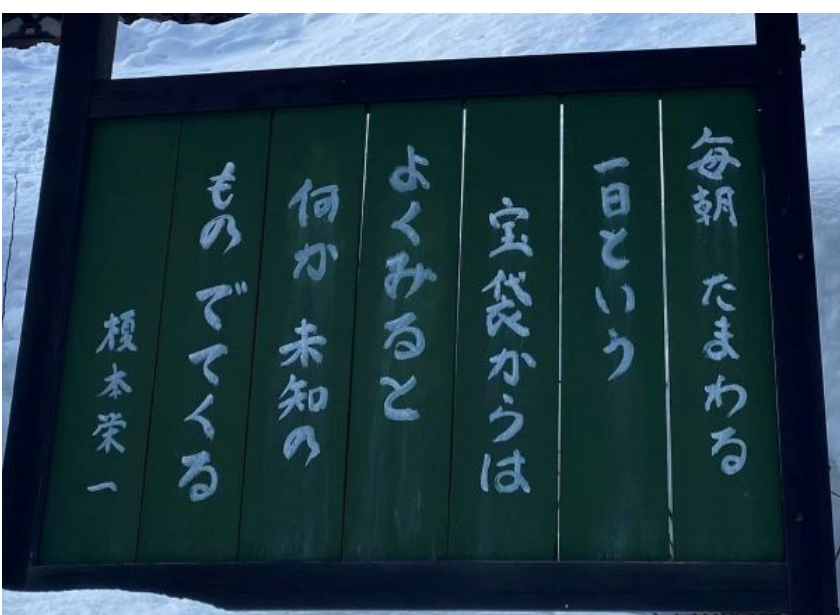 毎朝 たまわる
一日という
宝袋からは
よくみると
何か 未知の
もの でてくる
榎本栄一